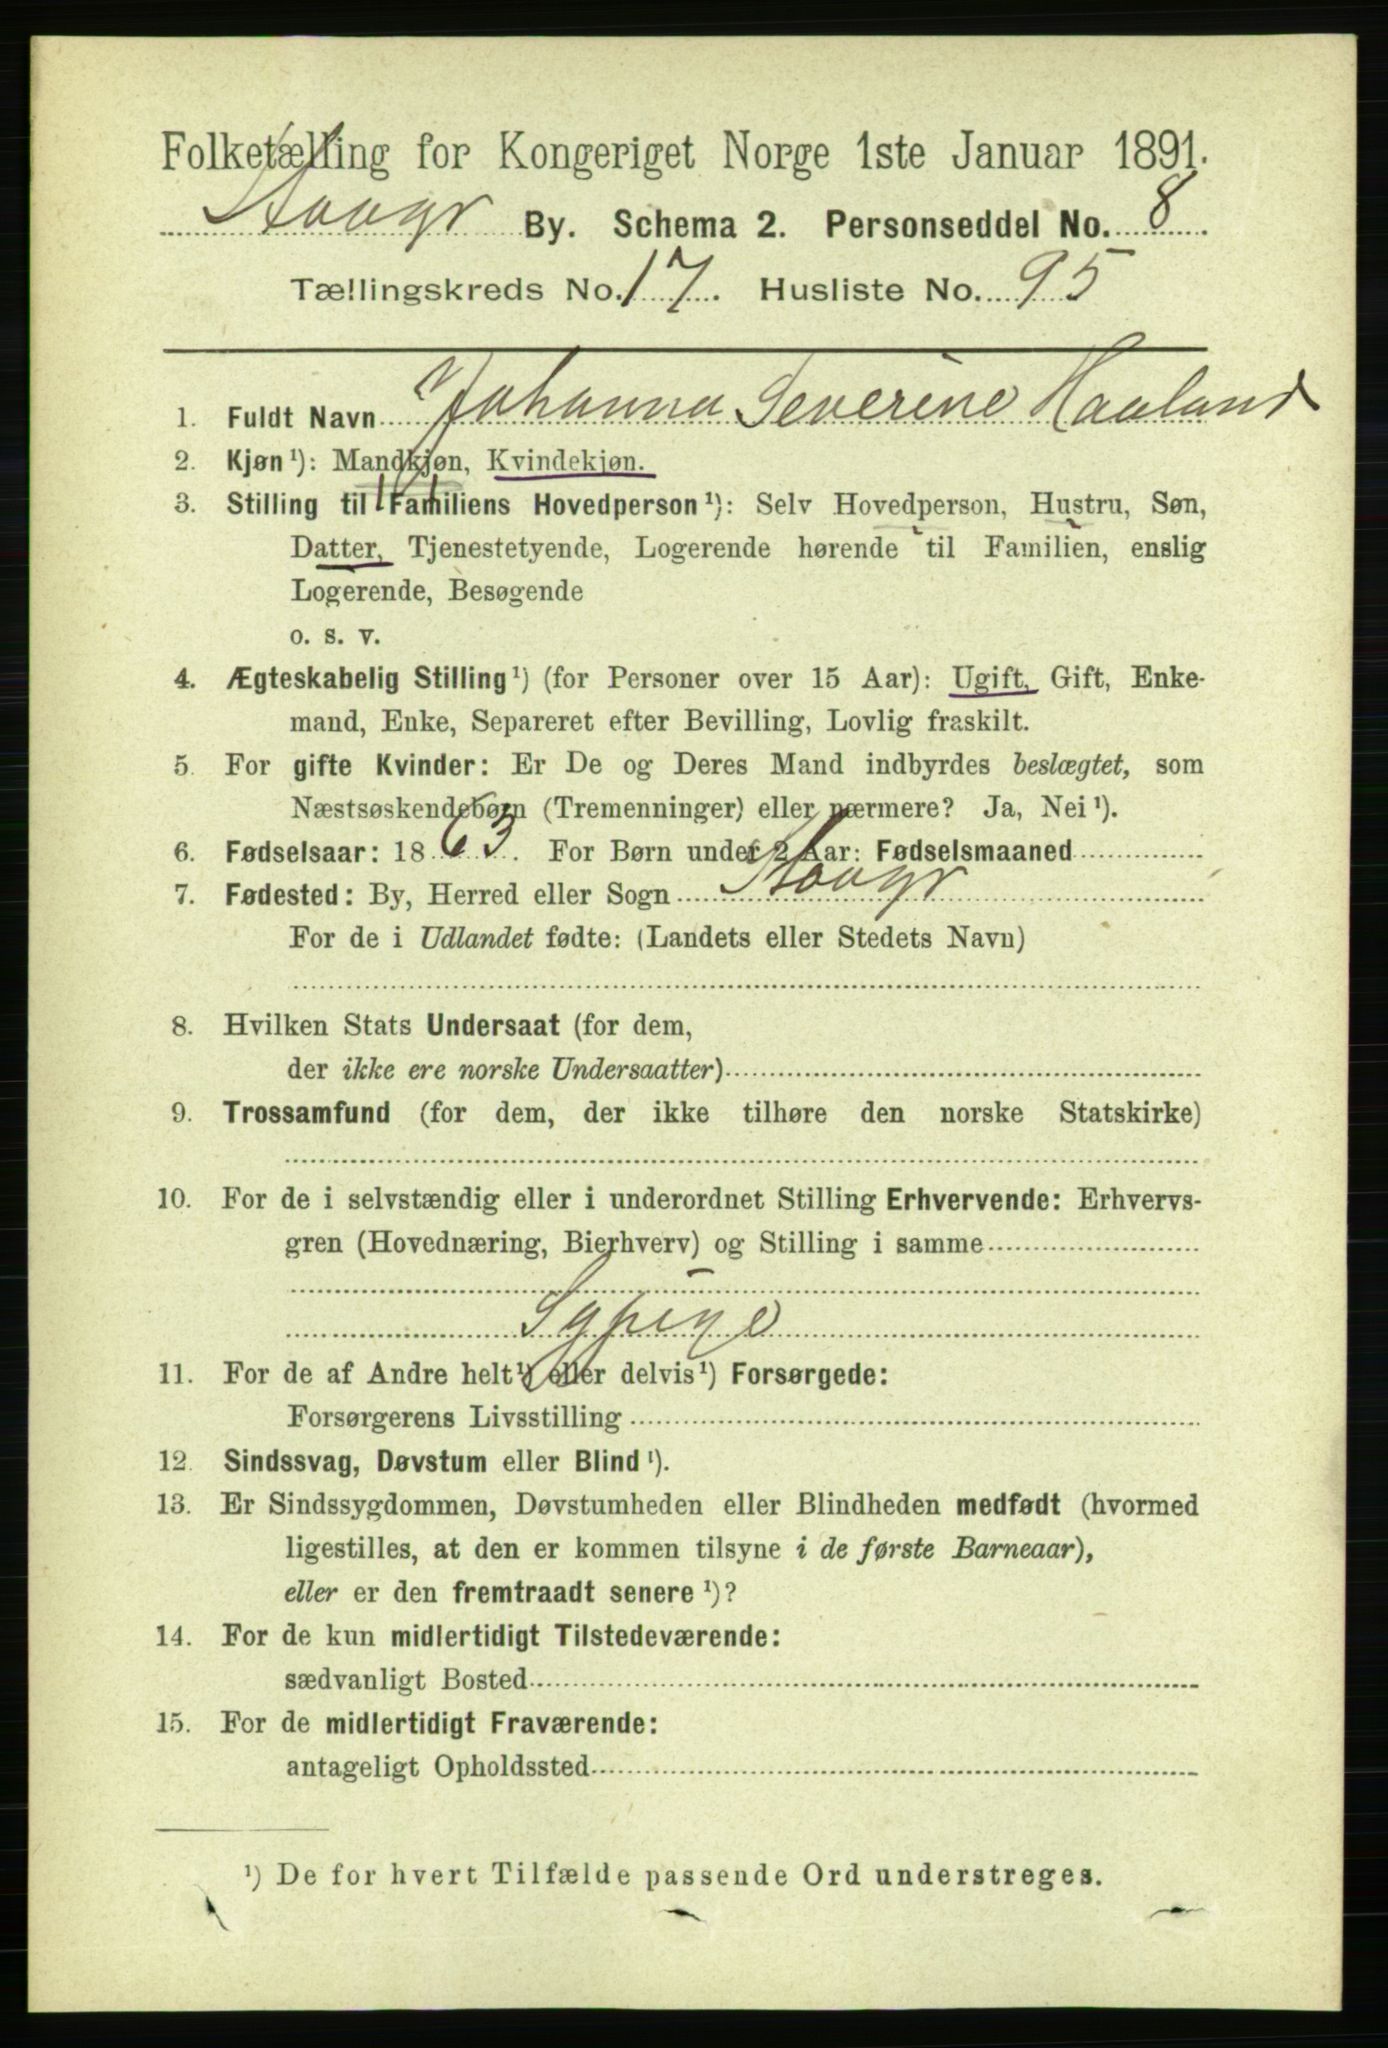 Folketælling for Kongeriget Norge 1ste Januar 1891.
Stavgr By. Schema 2. Personseddel No. 8
Tællingskreds No. 17. Husliste No. 95
1. Fuldt Navn Johanna Severine Haaland
2. Kjøn¹): Mandkjøn, Kvindekjøn.
3. Stilling til Familiens Hovedperson¹): Selv Hovedperson, Hustru, Søn,
Datter, Tjenestetyende, Logerende hørende til Familien, enslig
Logerende, Besøgende
o. s. v.
4. Ægteskabelig Stilling¹) (for Personer over 15 Aar): Ugift, Gift, Enke-
mand, Enke, Separeret efter Bevilling, Lovlig fraskilt.
5. For gifte Kvinder: Er De og Deres Mand indbyrdes beslægtet, som
Næstsøskendebørn (Tremenninger) eller nærmere? Ja, Nei¹).
6. Fødselsaar: 1863. For Børn under 2 Aar: Fødselsmaaned
7. Fødested: By, Herred eller Sogn Stavgr
For de i Udlandet fødte: (Landets eller Stedets Navn)
8. Hvilken Stats Undersaat (for dem,
der ikke ere norske Undersaatter)
9. Trossamfund (for dem, der ikke tilhøre den norske Statskirke)
10. For de i selvstændig eller i underordnet Stilling Erhvervende: Erhvervs-
gren (Hovednæring, Bierhverv) og Stilling i samme
Sypige
11. For de af Andre helt¹) eller delvis¹) Forsørgede:
Forsørgerens Livsstilling
12. Sindssvag, Døvstum eller Blind¹).
13. Er Sindssygdommen, Døvstumheden eller Blindheden medfødt (hvormed
ligestilles, at den er kommen tilsyne i de første Barneaar),
eller er den fremtraadt senere¹)?
14. For de kun midlertidigt Tilstedeværende:
sædvanligt Bosted
15. For de midlertidigt Fraværende:
antageligt Opholdssted
¹) De for hvert Tilfælde passende Ord understreges.